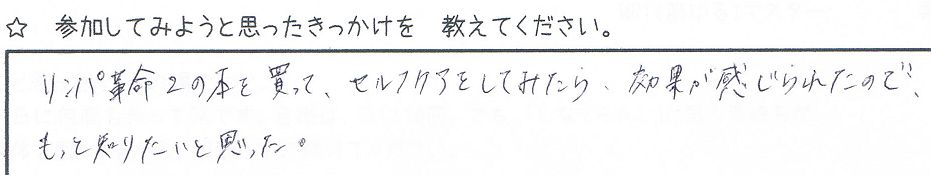 ☆ 参加してみようと思ったきっかけを 教えてください。
リンパ革命2の本を買って、セルフケアをしてみたら、効果が感じられたので、
もっと知りたいと思った。